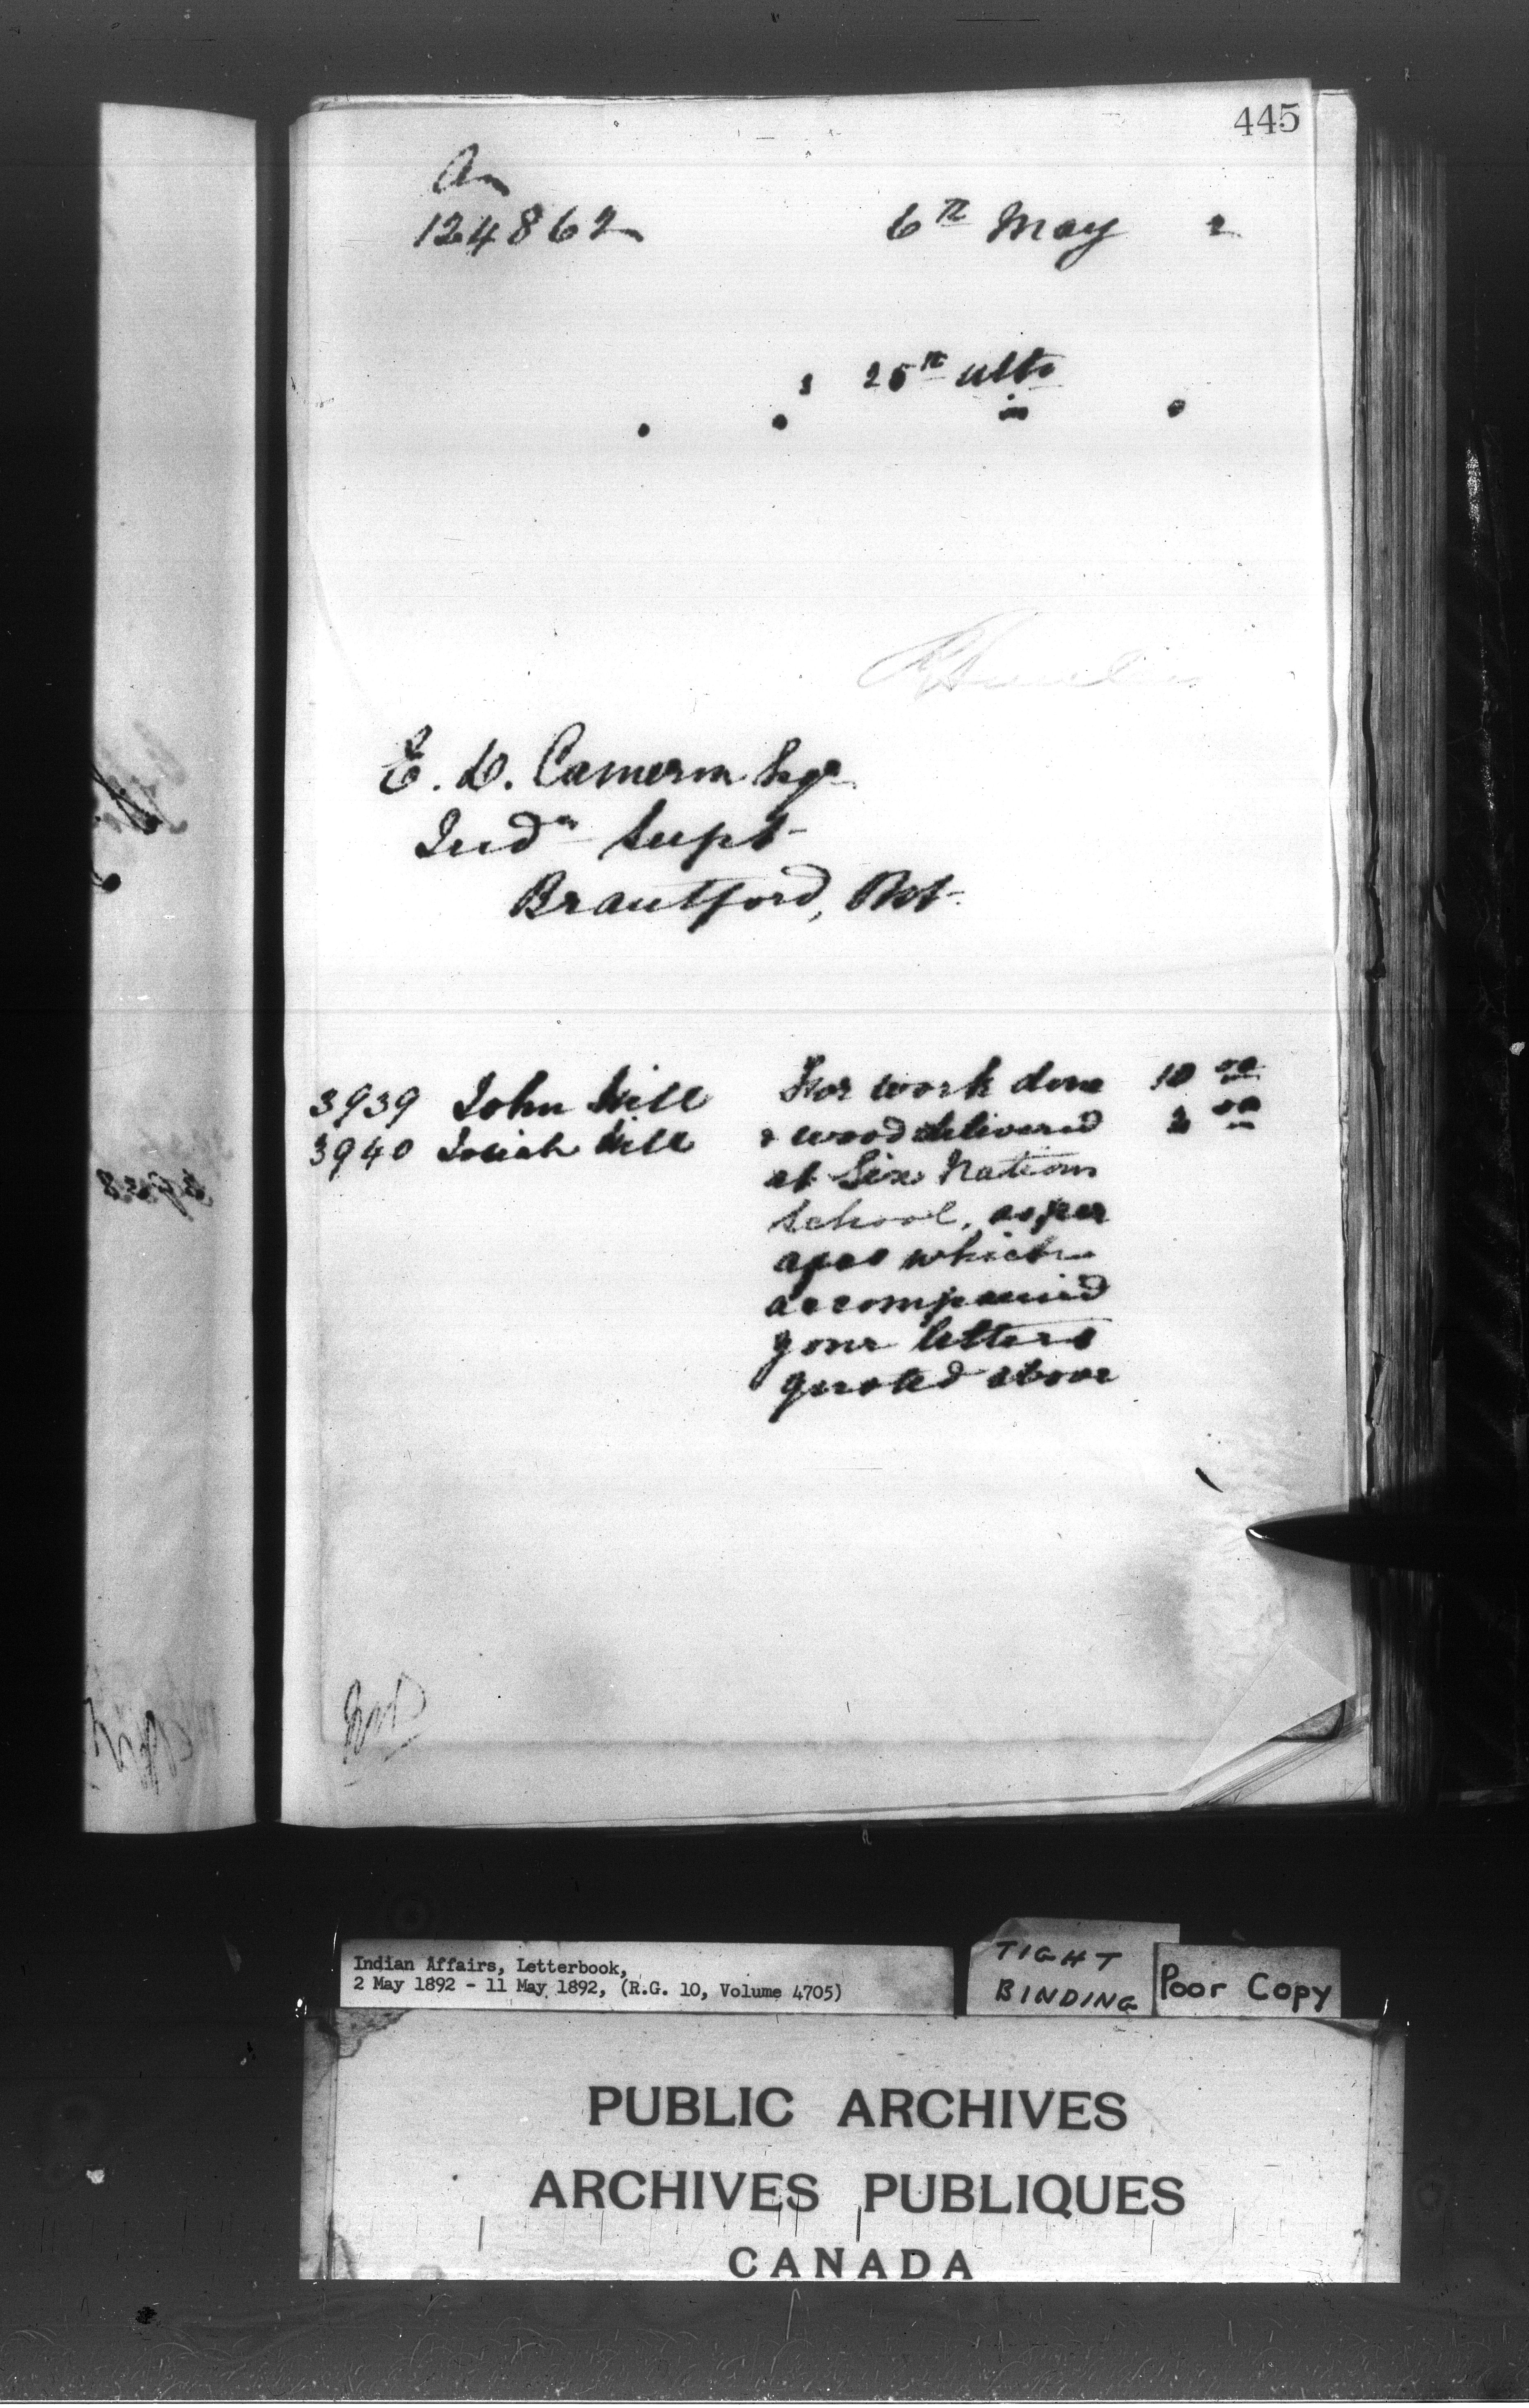 445
124862 6th May 2
s 25th ulto
E. D. Cameron Esqr
Indn Supt
Brantford, Ont.
3939 John Hill For work done 10 00
3940 Josiah Hill & wood delivered 2 00
at Six Nations
School, as per
apcs which
accompanied
your letters
quoted above
Indian Affairs, Letterbook,
2 May 1892 - 11 May 1892, (R.G. 10, Volume 4705)
TIGHT
BINDING
Poor Copy
PUBLIC ARCHIVES
ARCHIVES PUBLIQUES
CANADA